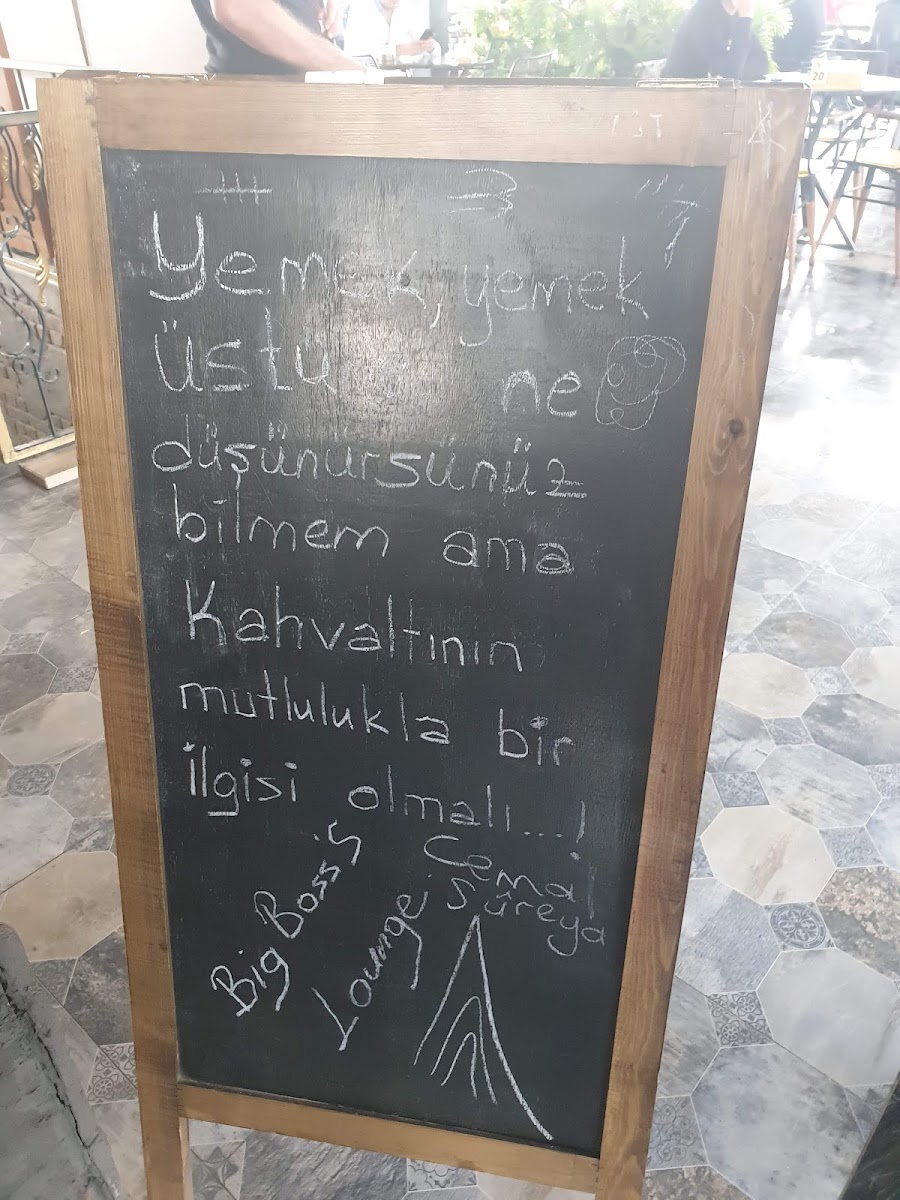 Yemek, yemek
üstü ne
düşünürsünüz
bilmem ama
Kahvaltının
mutlulukla bir
ilgisi olmalı...!
Cemal
Süreya
Big Boss'S
Lounge
20